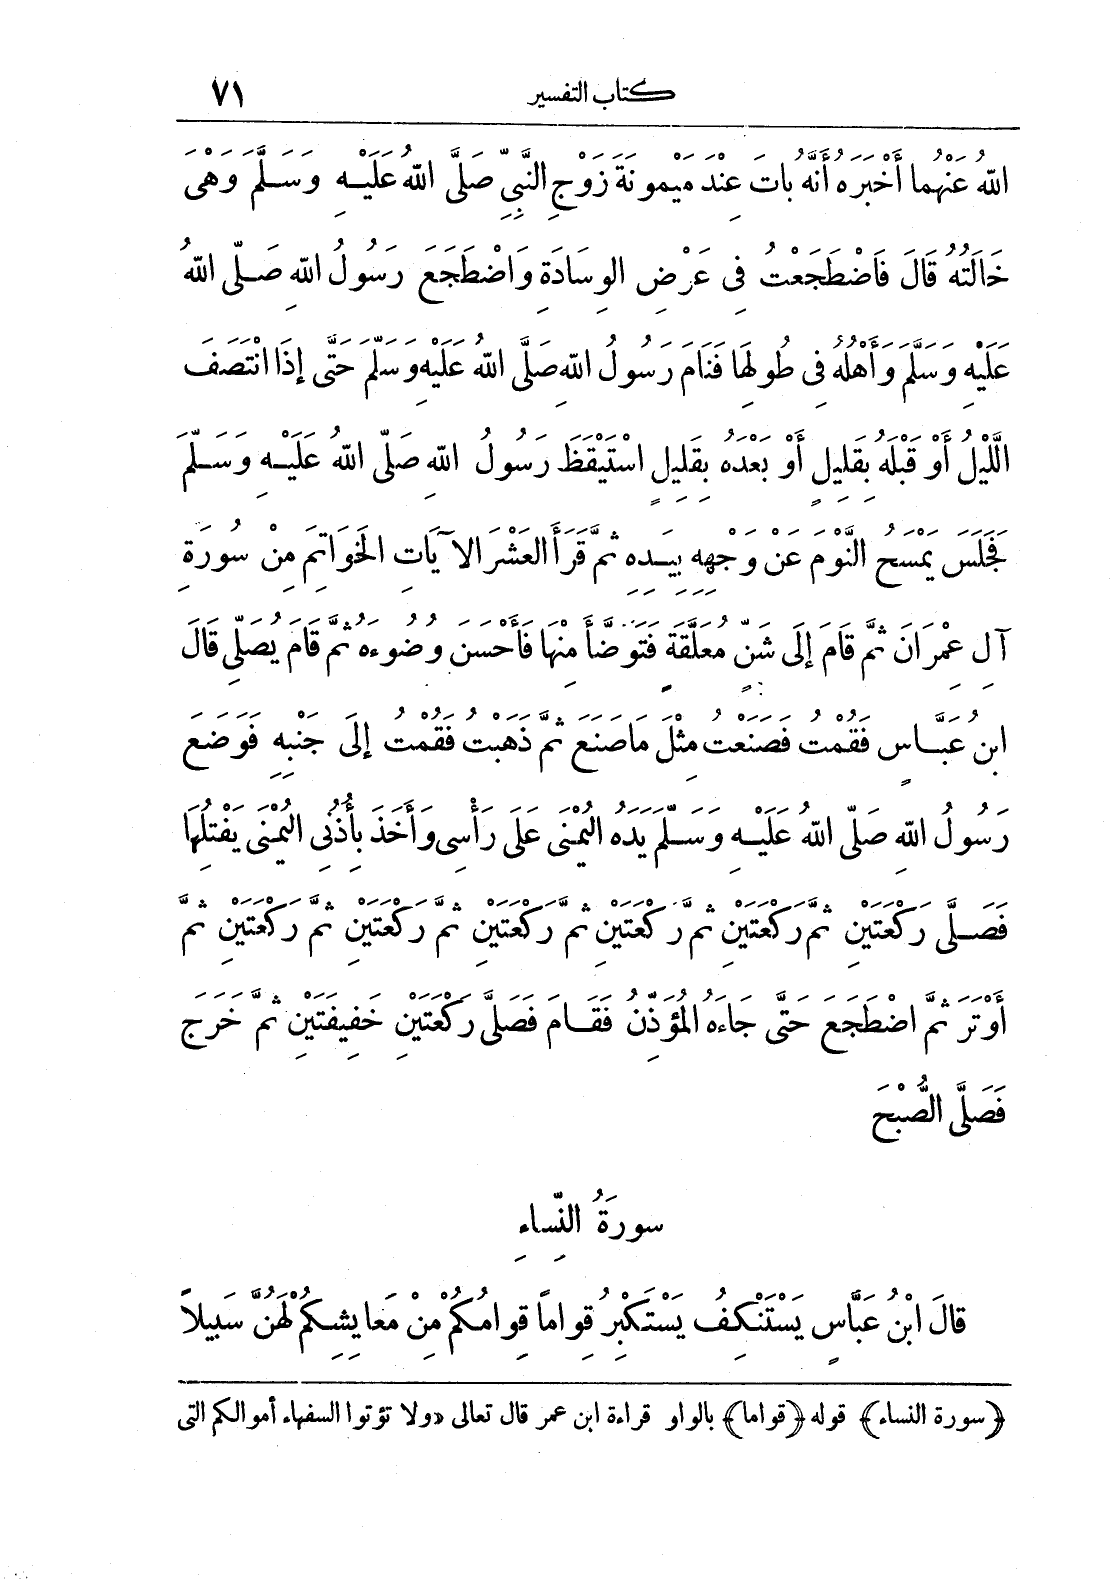 كتاب التفسير ٧١
اللهُ عَنْهُما أَخْبَرَهُ أَنَّهُ باتَ عِنْدَ مَيْمُونَةَ زَوْجِ النَّبِيِّ صَلَّى اللهُ عَلَيْهِ وَسَلَّمَ وَهْىَ
خَالَتُهُ قَالَ فَاضْطَجَعْتُ فِى عَرْضِ الوِسَادَةِ وَاضْطَجَعَ رَسُولُ اللهِ صَلَّى اللهُ
عَلَيْهِ وَسَلَّمَ وَأَهْلُهُ فِى طُولِهَا فَنَامَ رَسُولُ اللهِ صَلَّى اللهُ عَلَيْهِ وَسَلَّمَ حَتَّى إِذَا انْتَصَفَ
اللَّيْلُ أَوْ قَبْلَهُ بِقَلِيلٍ أَوْ بَعْدَهُ بِقَلِيلٍ اسْتَيْقَظَ رَسُولُ اللهِ صَلَّى اللهُ عَلَيْهِ وَسَلَّمَ
فَجَلَسَ يَمْسَحُ النَّوْمَ عَنْ وَجْهِهِ بِيَدِهِ ثُمَّ قَرَأَ العَشْرَ الآيَاتِ الخَوَاتِمَ مِنْ سُورَةِ
آلِ عِمْرَانَ ثُمَّ قَامَ إِلَى شَنٍّ مُعَلَّقَةٍ فَتَوَضَّأَ مِنْهَا فَأَحْسَنَ وُضُوءَهُ ثُمَّ قَامَ يُصَلِّى قَالَ
ابنُ عَبَّاسٍ فَقُمْتُ فَصَنَعْتُ مِثْلَ مَاصَنَعَ ثُمَّ ذَهَبْتُ فَقُمْتُ إِلَى جَنْبِهِ فَوَضَعَ
رَسُولُ اللهِ صَلَّى اللهُ عَلَيْهِ وَسَلَّمَ يَدَهُ اليُمْنَى عَلَى رَأْسِى وَأَخَذَ بِأُذُنِى اليُمْنَى يَفْتِلُهَا
فَصَلَّى رَكْعَتَيْنِ ثُمَّ رَكْعَتَيْنِ ثُمَّ رَكْعَتَيْنِ ثُمَّ رَكْعَتَيْنِ ثُمَّ رَكْعَتَيْنِ ثُمَّ رَكْعَتَيْنِ ثُمَّ
أَوْتَرَ ثُمَّ اضْطَجَعَ حَتَّى جَاءَهُ المُؤَذِّنُ فَقَامَ فَصَلَّى رَكْعَتَيْنِ خَفِيفَتَيْنِ ثُمَّ خَرَجَ
فَصَلَّى الصُّبْحَ
سورَةُ النِّساءِ
قالَ ابْنُ عَبَّاسٍ يَسْتَنْكِفُ يَسْتَكْبِرُ قِواماً قِوامُكُمْ مِنْ مَعايِشِكُمْ لَهُنَّ سَبِيلاً
﴿سورة النساء﴾ قوله ﴿قواما﴾ بالواو قراءة ابن عمر قال تعالى «ولا تؤتوا السفهاء أموالكم التى